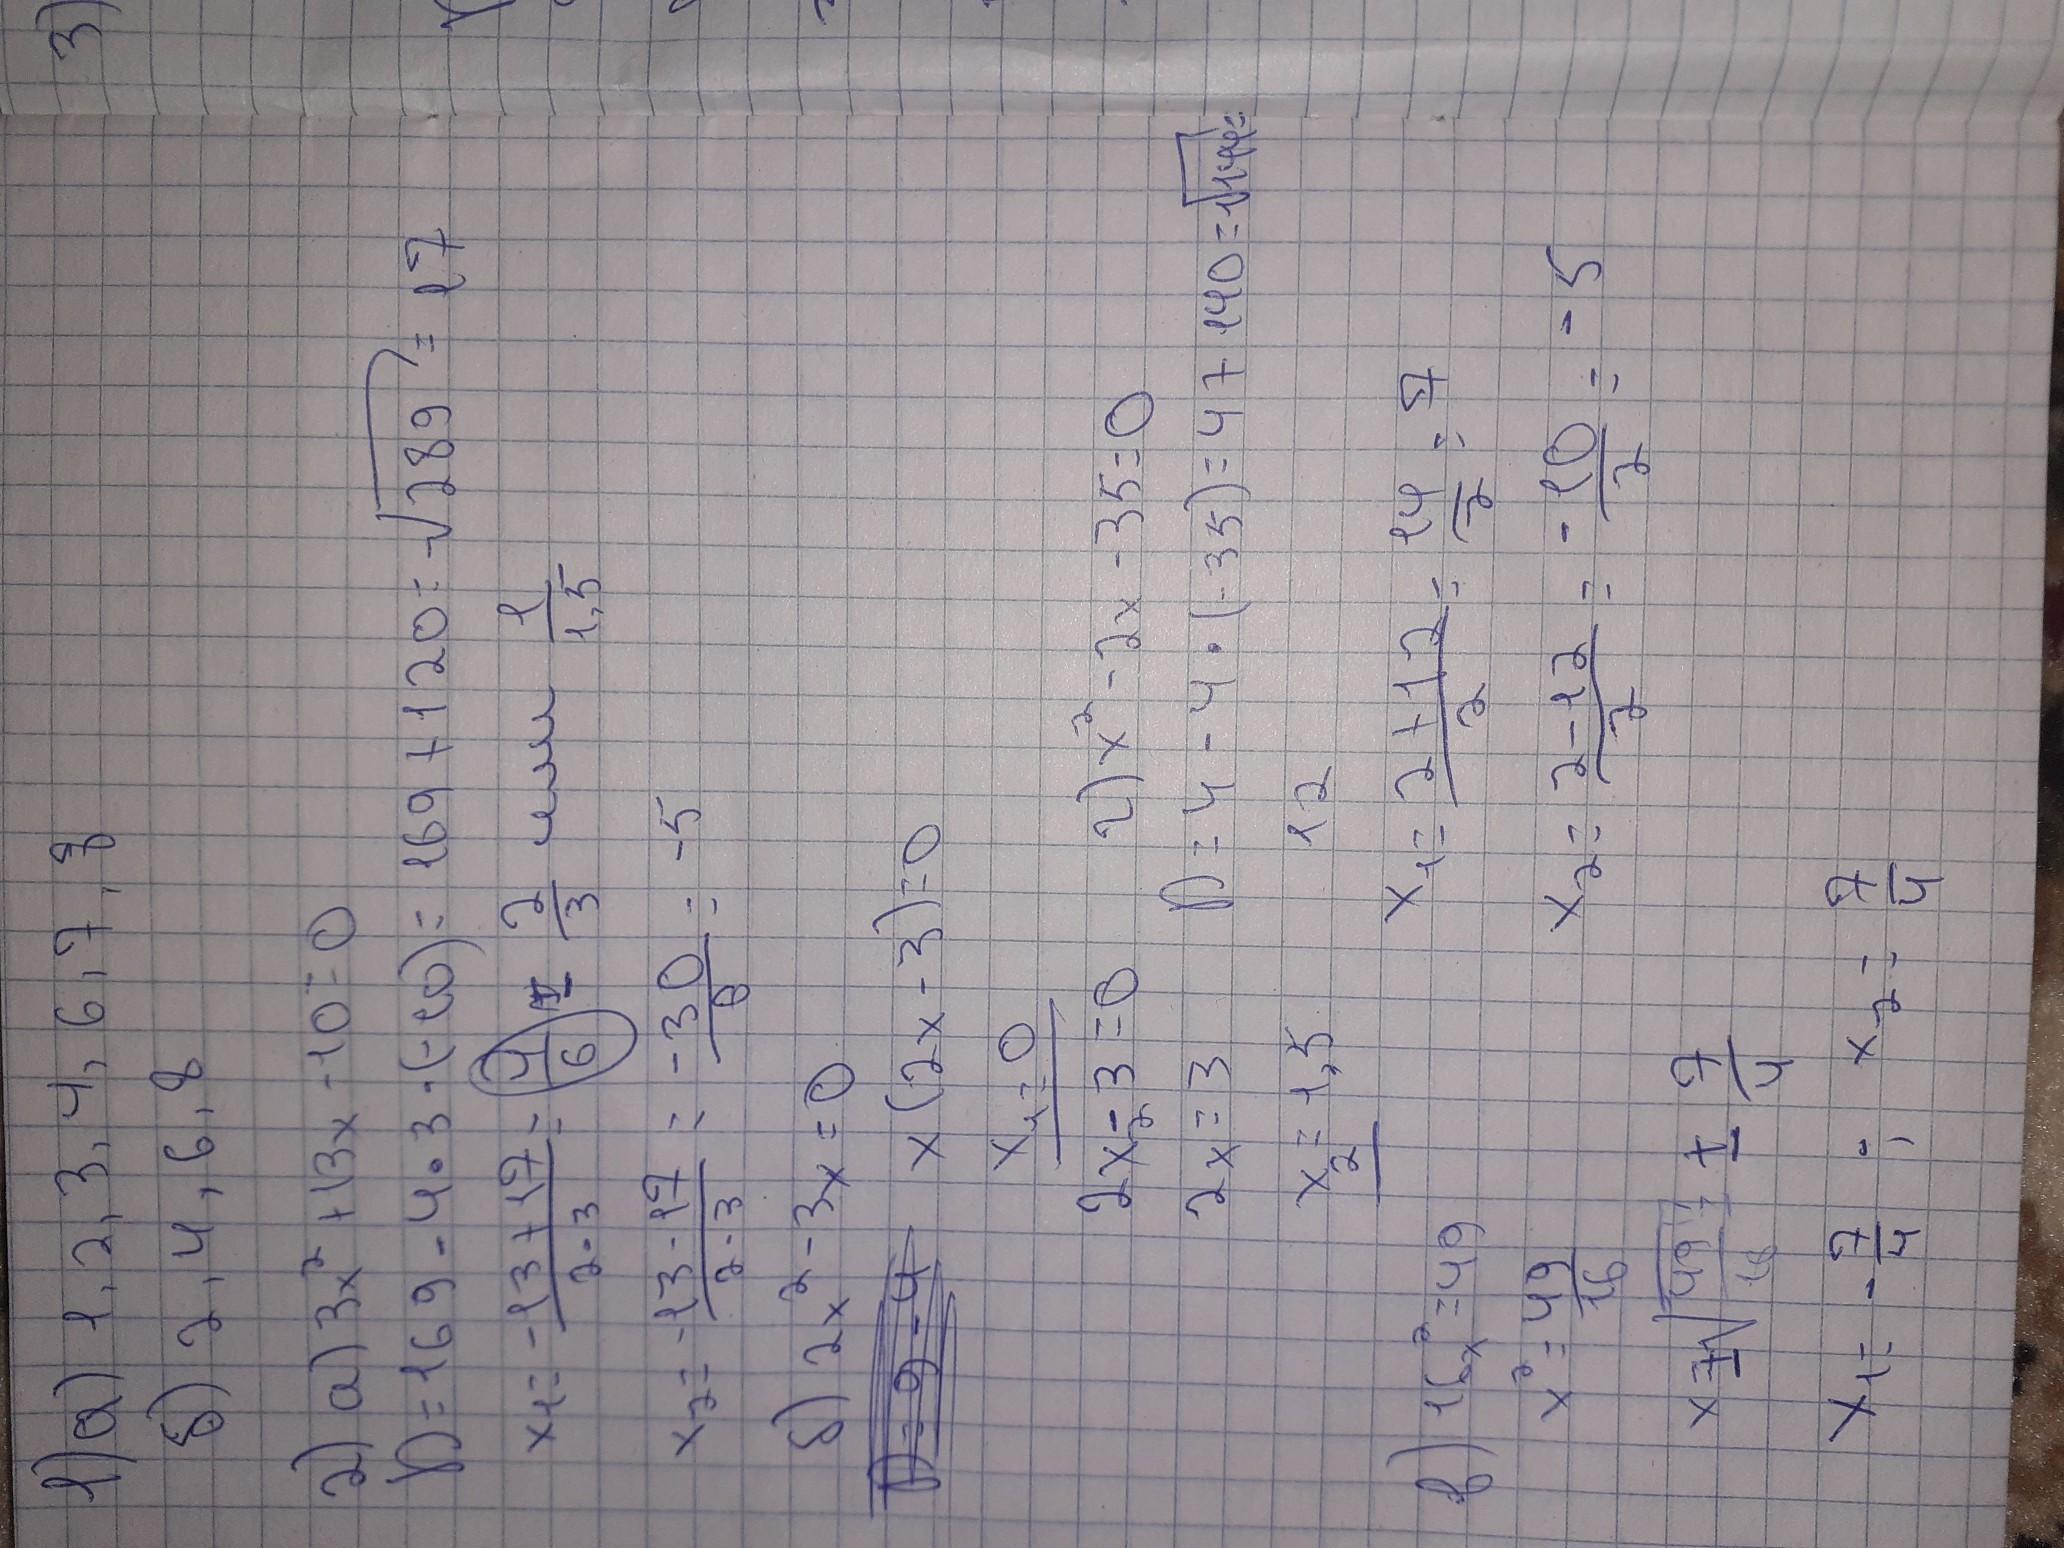 1) а) 1, 2, 3, 4, 6, 7, 8
б) 2, 4, 6, 8
2) а) 3x² + 13x - 10 = 0
D = 169 - 4 · 3 · (-10) = 169 + 120 = √289 = 17
x₁ = -13 + 17 / 2 · 3 = 4/6 = 2/3 или 1/1,5
x₂ = -13 - 17 / 2 · 3 = -30/6 = -5
б) 2x² - 3x = 0
x(2x - 3) = 0
x₁ = 0
2x - 3 = 0
2x = 3
x₂ = 1,5
в) 16x² = 49
x² = 49/16
x = ±√49/16 = ± 7/4
x₁ = - 7/4 , x₂ = 7/4
г) x² - 2x - 35 = 0
D = 4 - 4 · (-35) = 4 + 140 = √144 =
12
x₁ = 2 + 12 / 2 = 14/2 = 7
x₂ = 2 - 12 / 2 = -10/2 = -5
3)